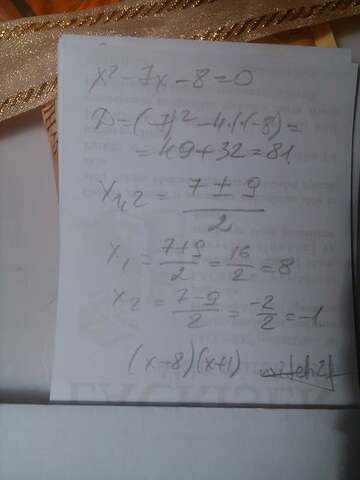 x² - 7x - 8 = 0
D = (-7)² - 4·1·(-8) =
= 49 + 32 = 81
x₁,₂ = (7 ± 9)/2
x₁ = (7+9)/2 = 16/2 = 8
x₂ = (7-9)/2 = -2/2 = -1
(x-8)(x+1)